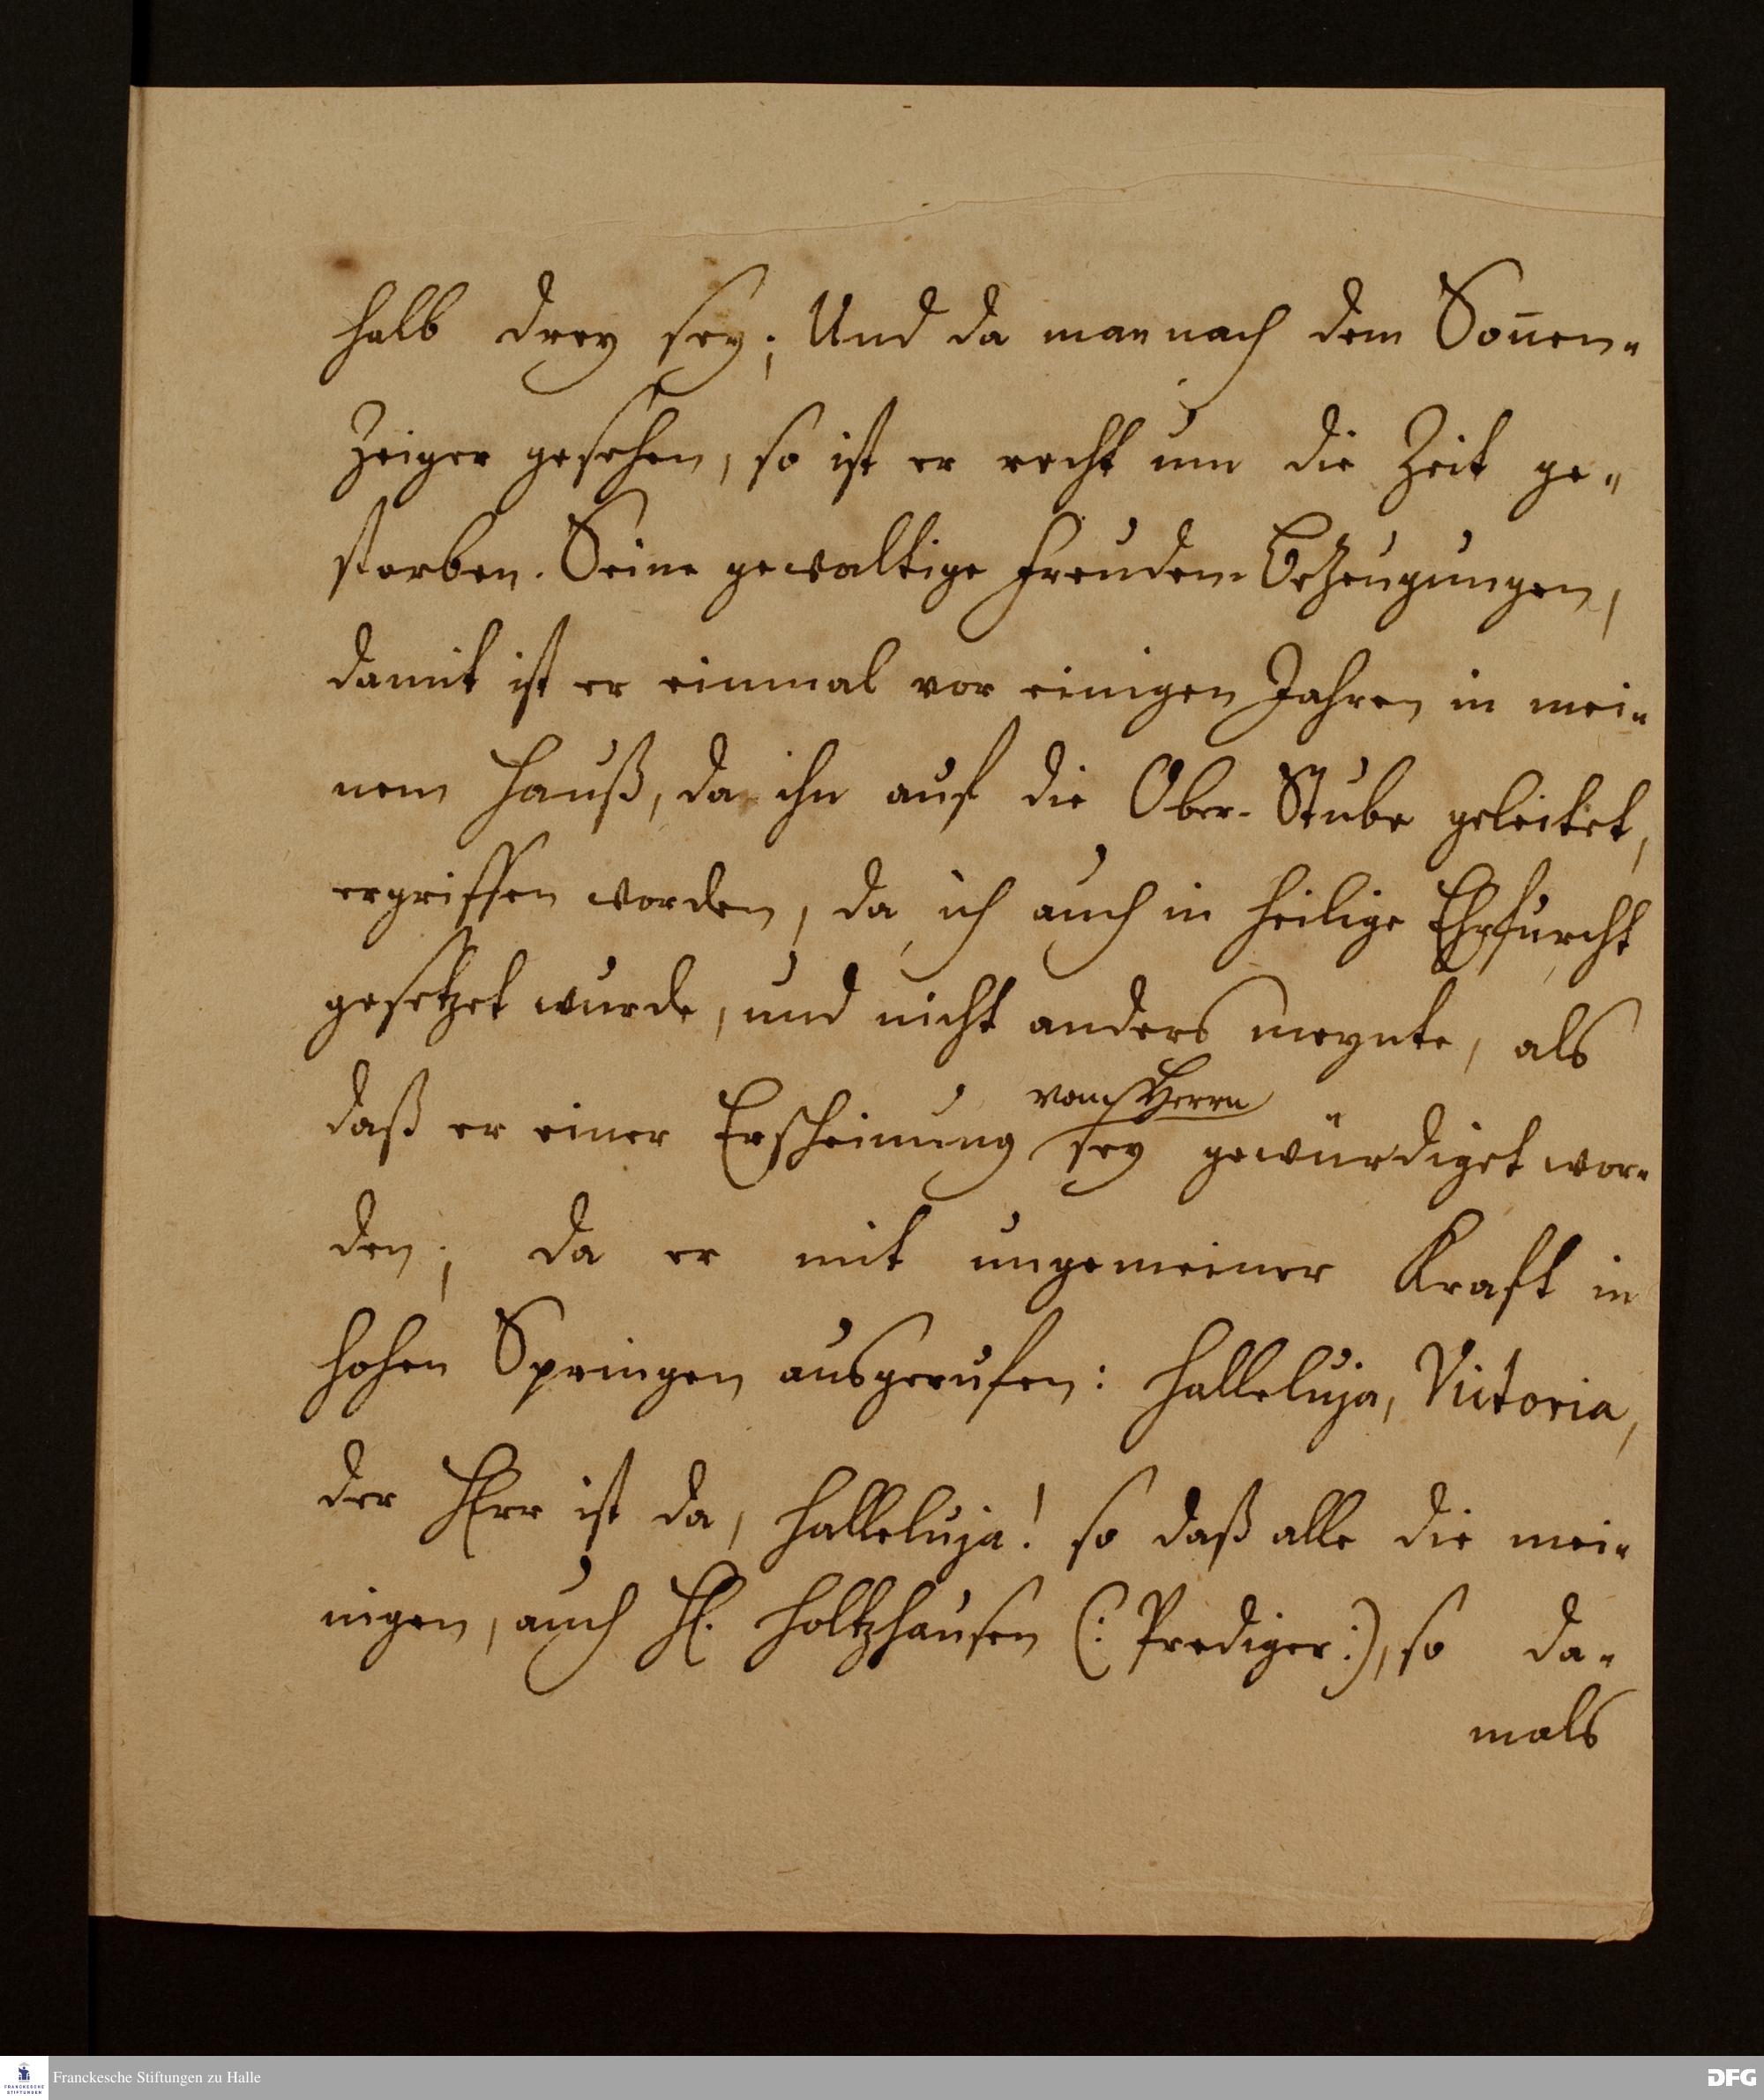 halb drey sey; Und da man nach dem Son̄en-
Zeiger gesehen, so ist er recht um die Zeit ge-
storben. Seine gewaltige Freuden-Bezeugungen,
damit ist er einmal vor einigen Jahren in mei-
nem Hauß, da ihn auf die Ober-Stube geleitet,
ergriffen worden, da ich auch in heilige Ehrfurcht
gesetzet wurde, und nicht anders meynte, als
vom HErrn
daß er einer Erscheinung sey gewürdiget wor-
den; da er mit ungemeiner Krafft in
hohen Springen ausgerufen: Halleluja, Victoria,
der HErr ist da, Halleluja! so daß alle die mei-
nigen, auch H. Holtzhausen (: Prediger:), so da-
mals
Franckesche Stiftungen zu Halle
DFG